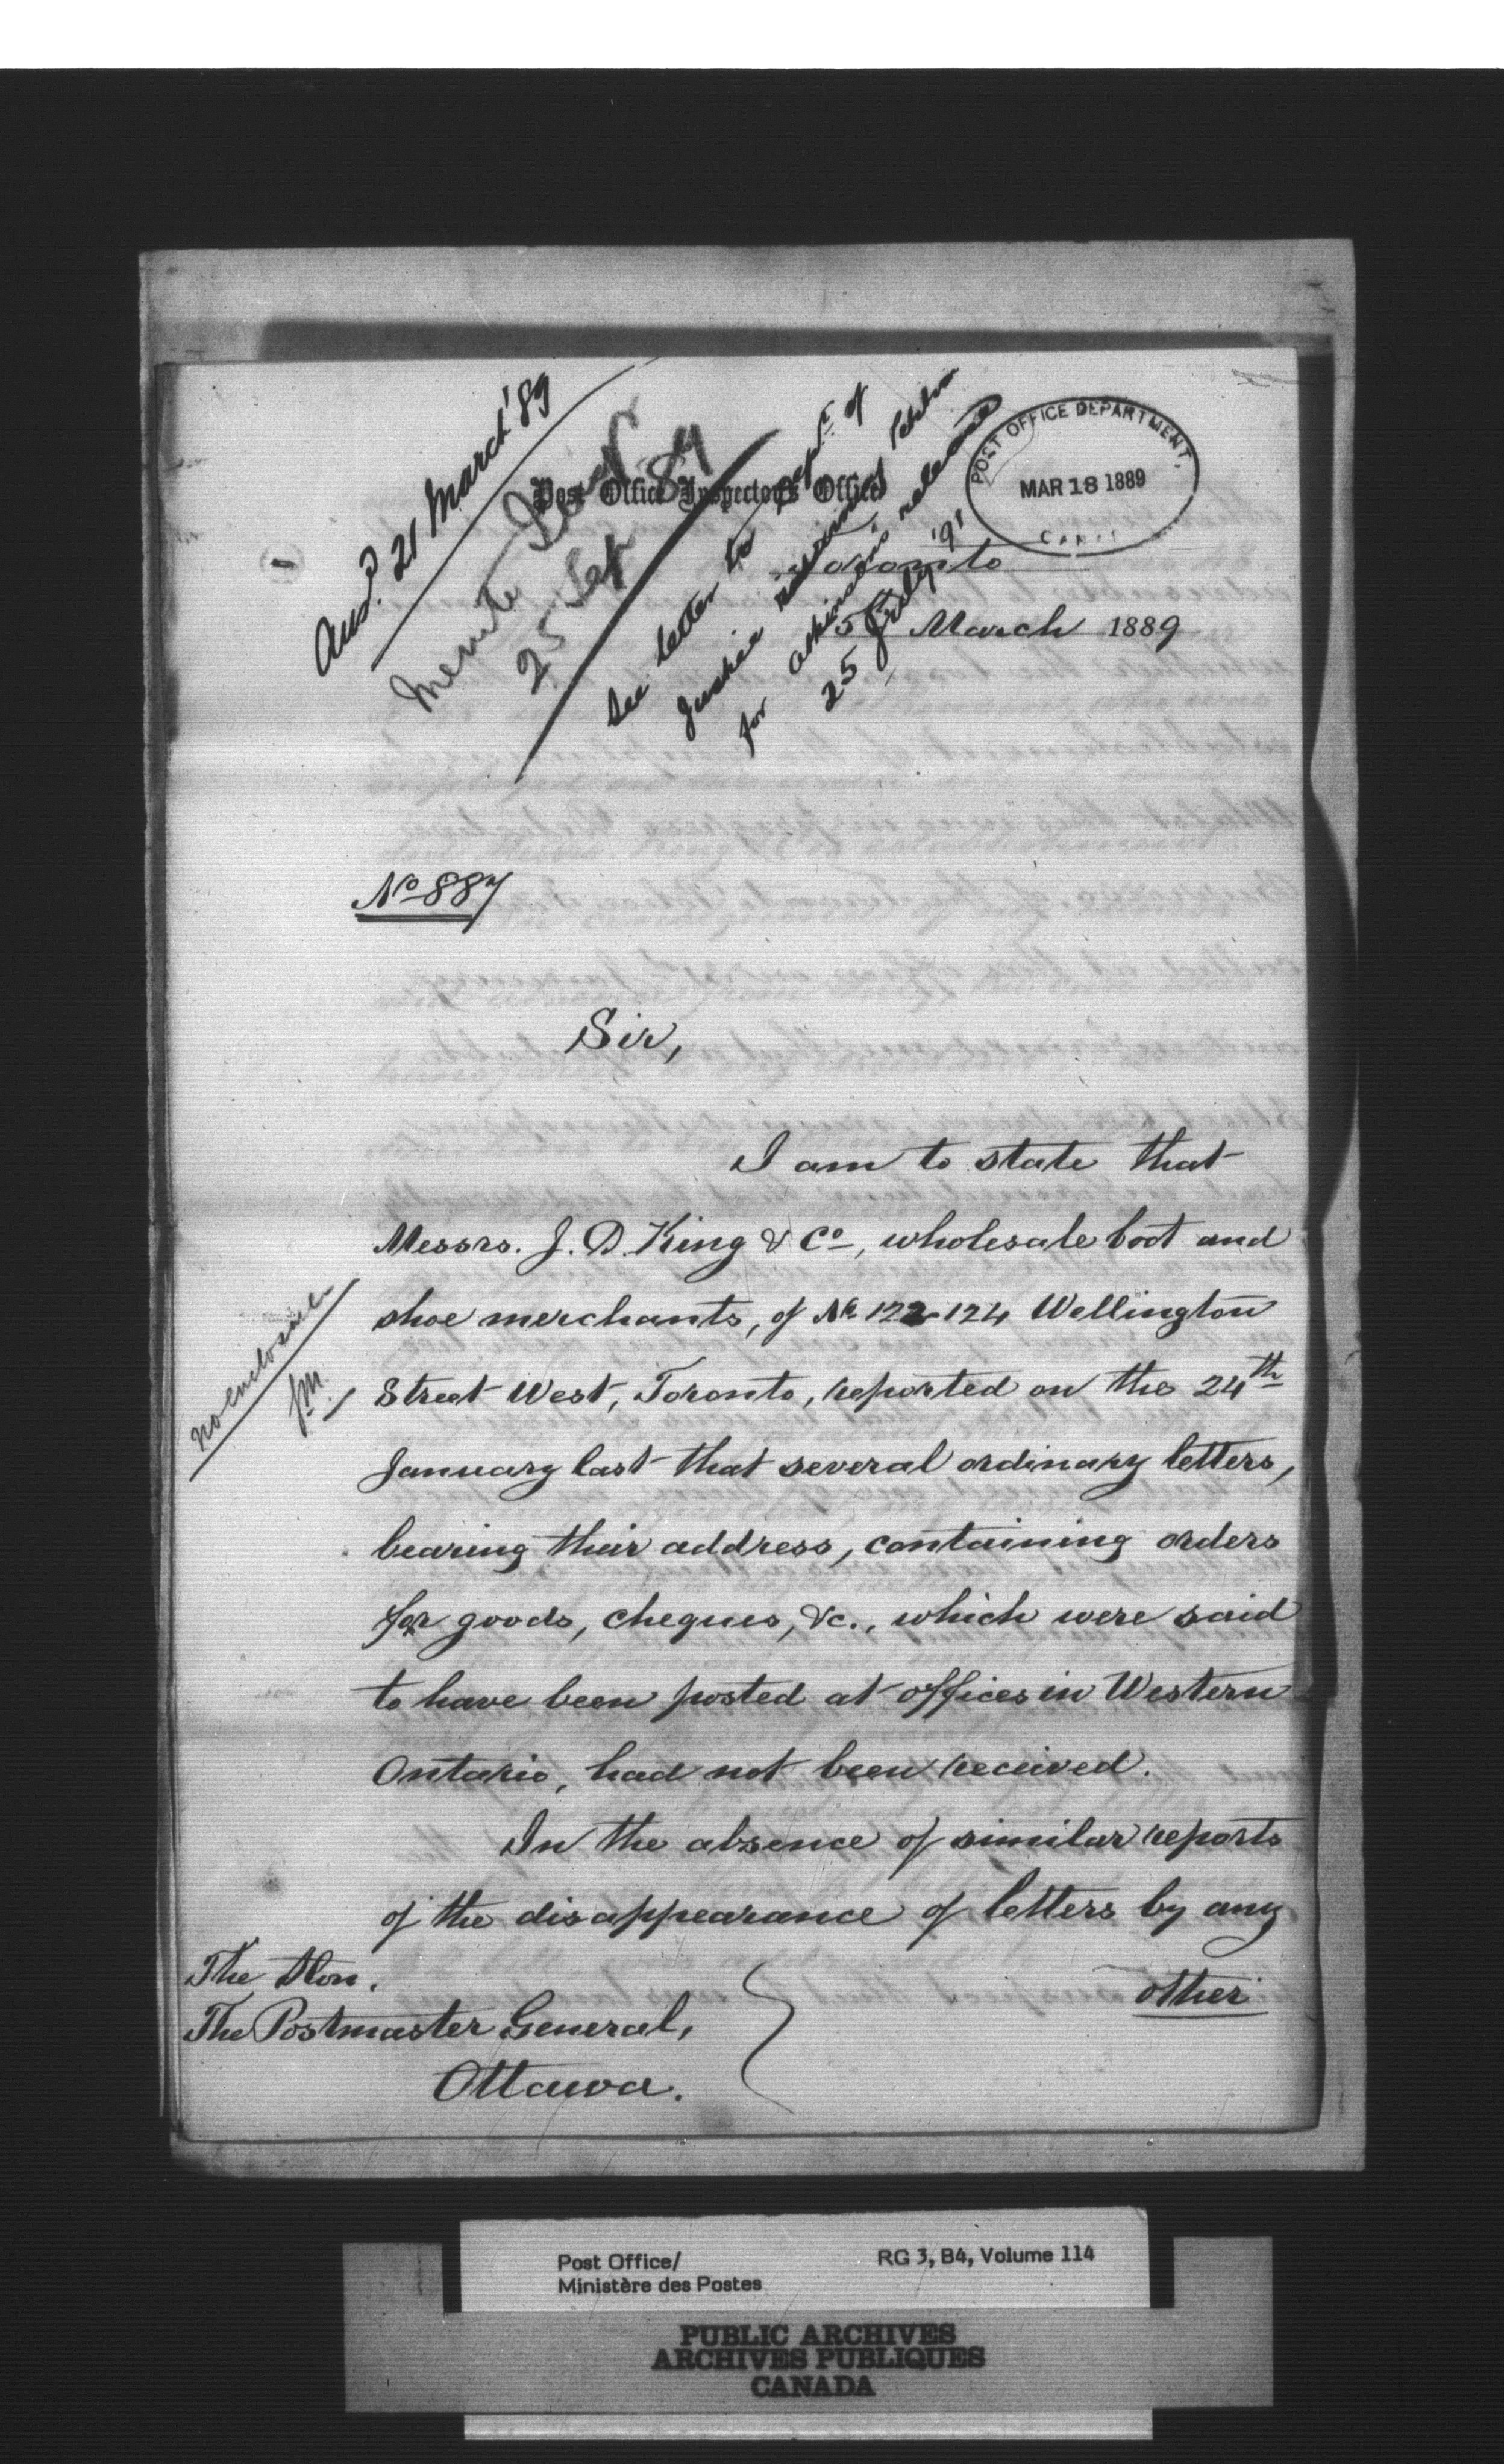 Ansd. 21 March '89
25 Sep 89
See letter to Dept. of
Justice returning Petition
for Atkinson's release
25 July '91
POST OFFICE DEPARTMENT,
MAR 18 1889
Post Office Inspector's Office
Toronto
5 March 1889
No 887
Sir,
I am to state that
Messrs. J. D. King & Co, wholesale boot and
shoe merchants, of No 122-124 Wellington
Street West, Toronto, reported on the 24th
January last that several ordinary letters,
bearing their address, containing orders
for goods, cheques, &c., which were said
to have been posted at offices in Western
Ontario, had not been received.
no enclosure
In the absence of similar reports
of the disappearance of letters by any
other
The Hon.
The Postmaster General,
Ottawa.
Post Office/
Ministère des Postes
RG 3, B4, Volume 114
PUBLIC ARCHIVES
ARCHIVES PUBLIQUES
CANADA